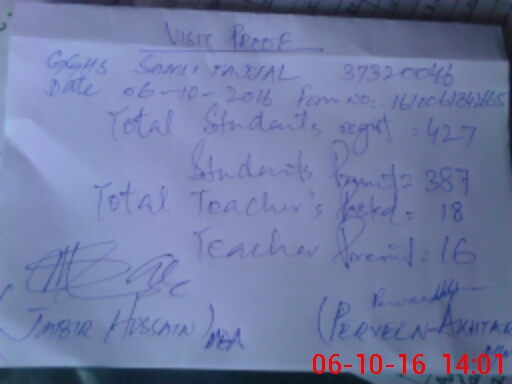 VISIT PROOF
GGHS SAMUTAJUAL 37320046
Date 06-10-2016 Form No:
Total Students regist = 427
Students Present = 387
Total Teacher's Posted = 18
Teacher Present = 16
(JABIR HUSSAIN) MEA
(PERVEEN-AKHTAR
06-10-16 14:01